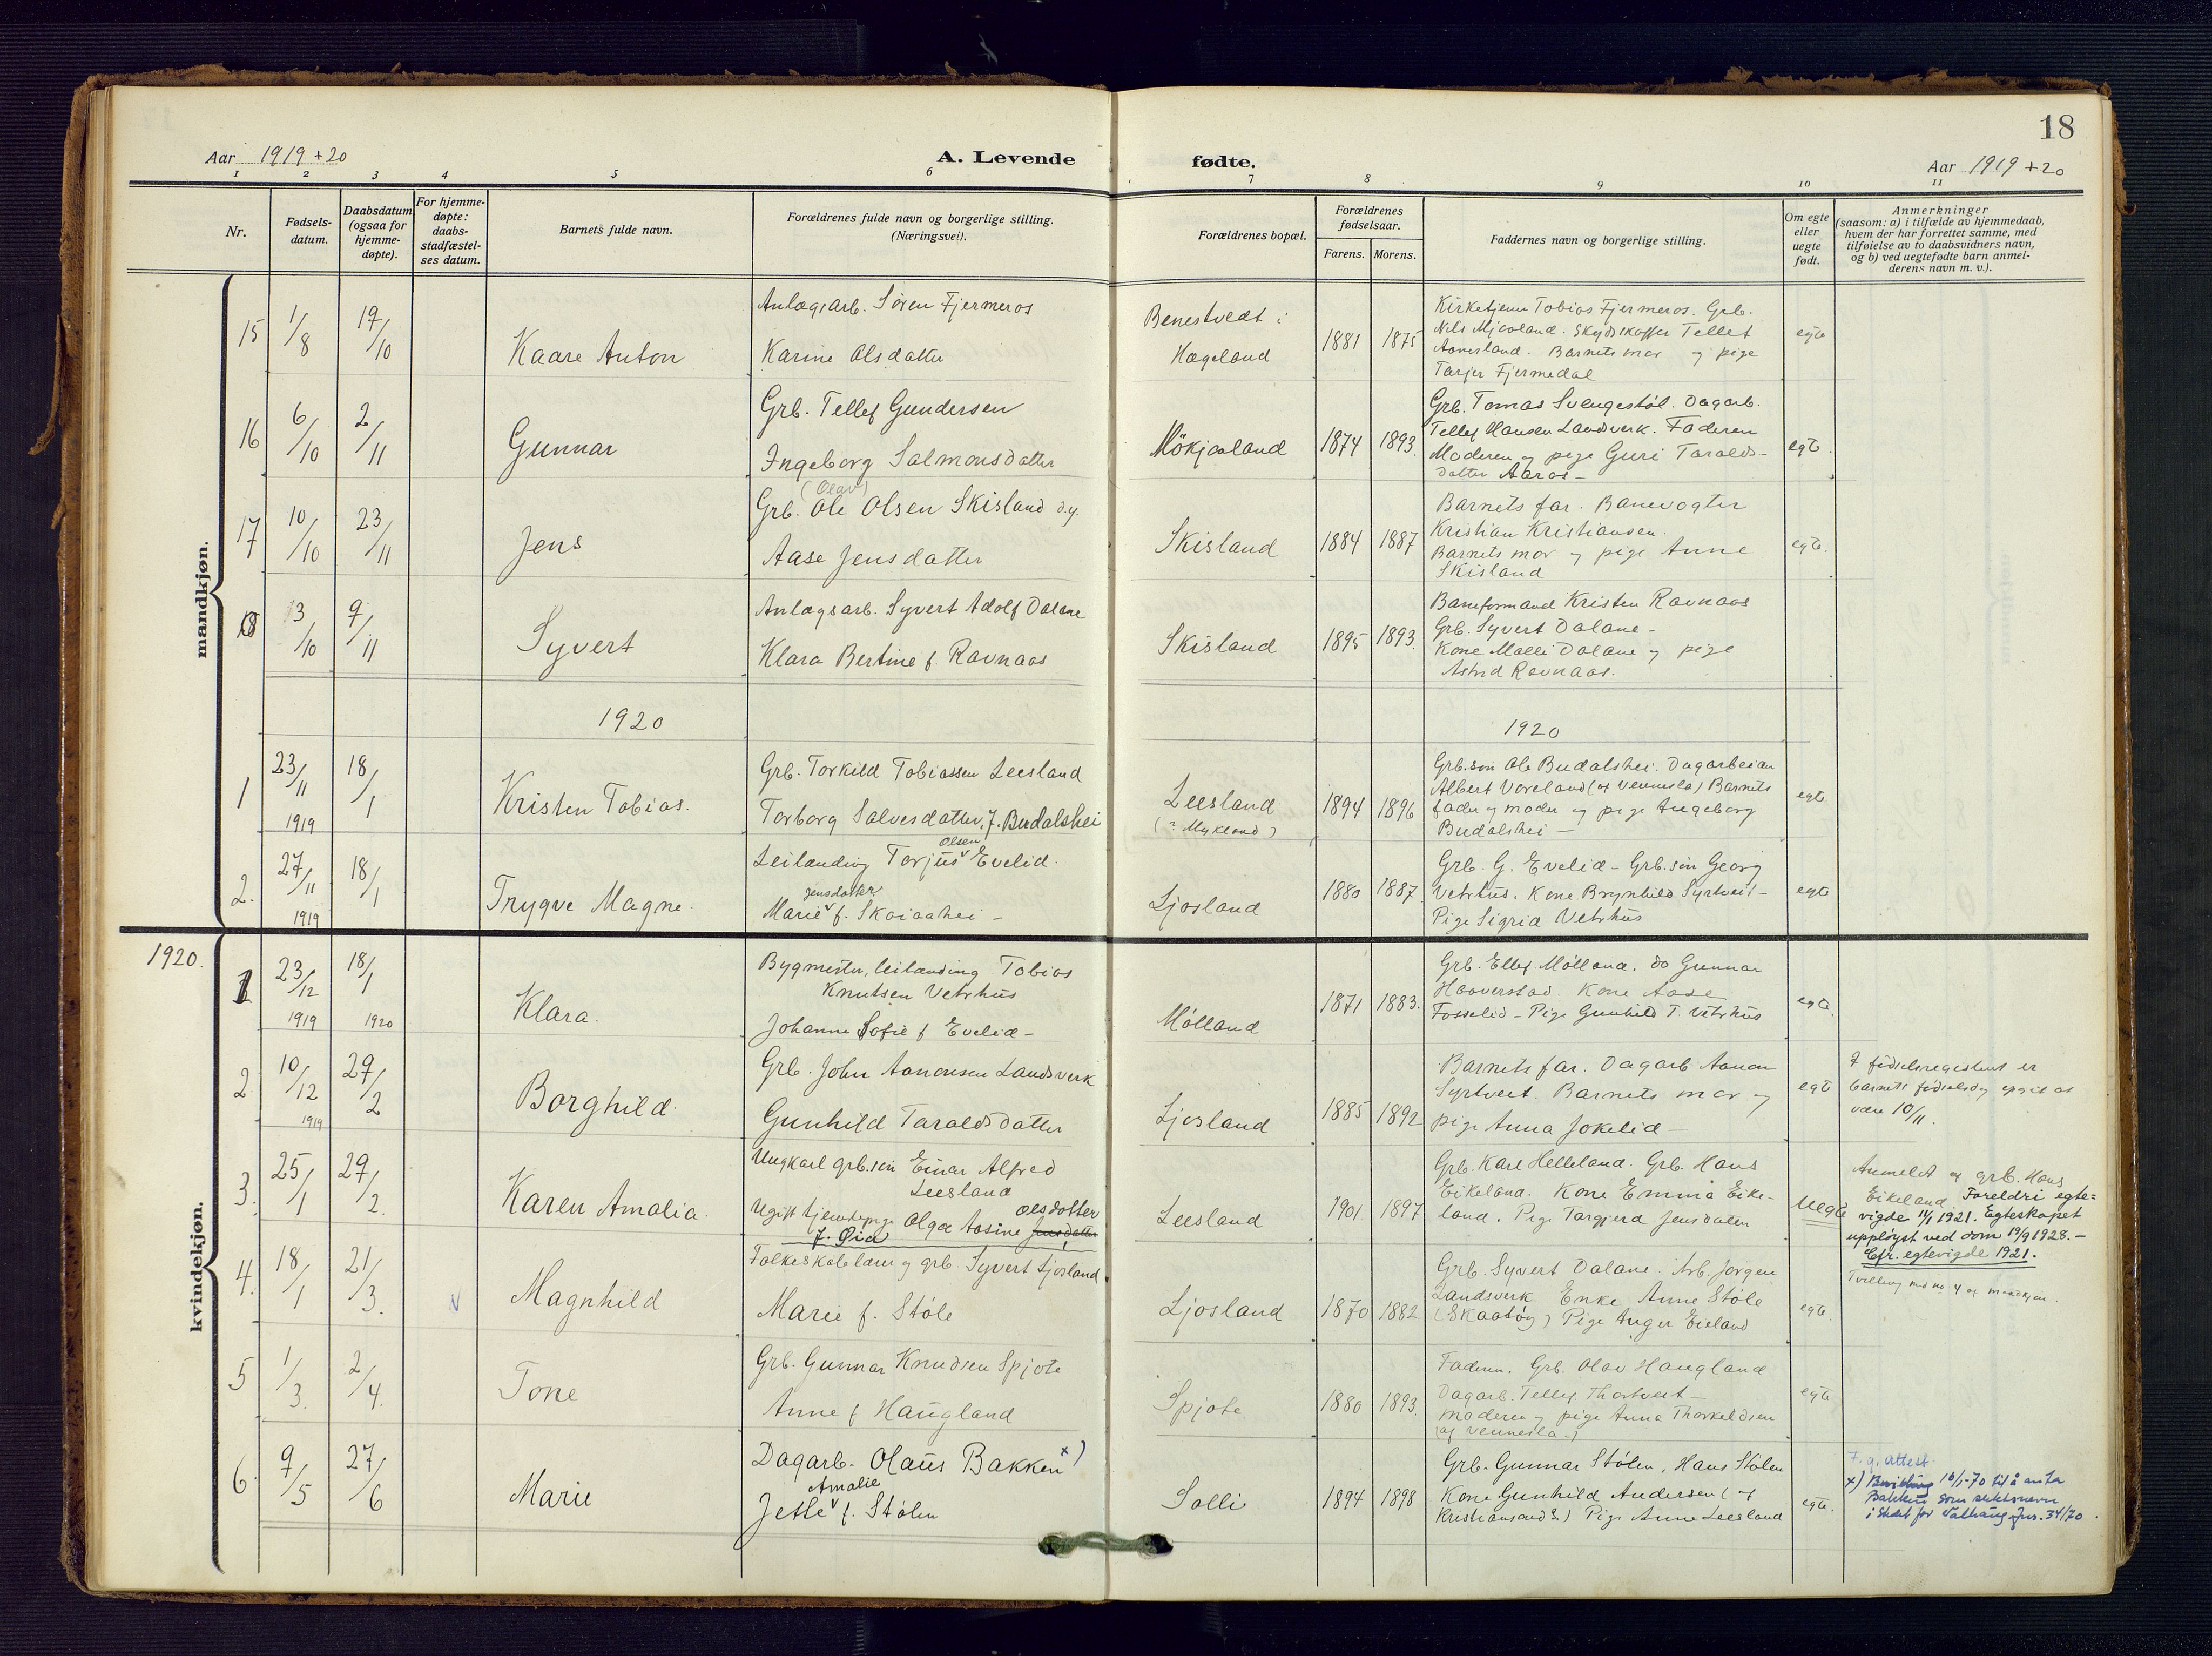 18
Aar 1919 + 20
A. Levende
fødte.
Aar 1919 + 20
1 2 3 4 5 6 7 8 9 10 11
Nr.
Fødsels-
datum.
Daabsdatum
(ogsaa for
hjemme-
døpte).
For hjemme-
døpte:
daabs-
stadfæstel-
ses datum.
Barnets fulde navn.
Forældrenes fulde navn og borgerlige stilling.
(Næringsvei).
Forældrenes bopæl.
Forældrenes
fødselsaar.
Farens. Morens.
Faddernes navn og borgerlige stilling.
Om egte
eller
uegte
født.
Anmerkninger
(saasom: a) i tilfælde av hjemmedaab,
hvem der har forrettet samme, med
tilføielse av to daabsvidners navn,
og b) ved uegtefødte barn anmel-
derens navn m. v.).
mandkjøn.
15 1/8 19/10
Kaare Anton
Anlægsarb. Søren Fjermeros
Karine Olsdatter
Benestvedt i
Hægeland
1881 1875
Kirketjener Tobias Fjermeros. Grb.
Nils Mjaaland. Skydsskaffer Tellef
Aaneland. Barnets mor og pige
Tarjer Fjermedal
egte
16 6/10 2/11
Gunnar
Grb. Tellef Gundersen
Ingeborg Salmonsdatter
Mökjaaland
1874 1893.
Grb. Tomas Svengestöl. Dagarb.
Tellef Hansen Landsverk. Faderen
Moderen og pige Guri Taralds-
datter Aaros -
egte.
17 10/10 23/11
Jens
(Olav)
Grb. Ole Olsen Skisland d.y.
Aase Jensdatter
Skisland
1884 1887
Barnets far. Banevogter
Kristian Kristiansen.
Barnets mor og pige Anne
Skisland
egte.
18 13/10 9/11
Syvert
Anlægsarb. Syvert Adolf Dalane
Klara Bertine f. Ravnaas
Skisland
1895 1893.
Baneformand Kristen Ravnaas
Grb. Syvert Dalane -
Kone Malli Dalane og pige
Astrid Ravnaas.
1920
1920
1 23/11 1919 18/1
Kristen Tobias.
Grb. Torkild Tobiassen Leesland
Torborg Salvesdatter, f. Budalshei
Leesland
(? Mykland)
1894 1896
Grb.søn Ole Budalshei. Dagarbeider
Albert Voreland (af Vennesla) Barnets
fader og moder og pige Ingeborg
Budalshei -
egte
2. 27/11 1919 18/1
Trygve Magne.
Olsen
Leilænding Torjus Evelid.
Jensdatter
Marie f. Skaiaahei -
Ljosland
1880 1887
Grb. G. Evelid - Grb.søn Georg
Vetrhus. Kone Brynhild Syrtveit -
Pige Sigrid Vetrhus
egte
kvindekjøn.
1920.
1 23/12 1919 18/1 1920
Klara.
Bygmester, leilænding Tobias
Knutsen Vetrhus
Johanne Sofie f Evelid -
Mölland
1871 1883.
Grb. Ellef Mölland. do Gunnar
Haaverstad. Kone Aase
Fosselid - Pige Gunhild T. Vetrhus
egte.
2 10/12 1919 29/2
Borghild.
Grb. John Aanonsen Landsverk
Gunhild Taraldsdatter
Ljosland
1885 1892
Barnets far. Dagarb Aanon
Syrtveit. Barnets mor og
pige Anna Jokelid -
egte
I födselsregisteret er
barnets födselsdag opgit at
være 10/11.
3. 25/1 29/2.
Karen Amalia.
Ungkarl grb.søn Einar Alfred
Leesland
Olsdotter
Ugift tjenestepige Olga Aasine Jensdatter
f. Øia
Leesland
1901 1897
Grb. Kare Helleland. Grb. Hans
Eikeland. Kone Emma Eike-
land. Pige Targjerd Jensdatter
Uegte
Anmeldt af grb. Hans
Eikeland. Foreldri egte=
vigde 11/1 1921. Egteskapet
upplöyst ved dom 19/9 1928. -
Cfr. egtevigde 1921.
4. 18/1 21/3.
V
Magnhild
Folkeskolelærer og grb. Syvert Ljosland.
Marie f. Støle
Ljosland
1870 1882
Grb. Syvert Dalane. Arb. Jørgen
Landsverk Enke Anne Støle
(Skaaböy) Pige Inger Eieland
egte.
Tvilling med no 4 af mandkjøn.
5 1/3. 2/4.
Tone
Grb. Gunnar Knudsen Spjote
Anne f Haugland
Spjote
1880 1893.
Faderen. Grb. Olav Haugland
Dagarb. Tellef Thortveit -
moderen og pige Anna Thorkeldsen
(af Vennesla -)
egte
6. 9/5 27/6
Marie
Dagarb. Olaus Bakken x)
Amalie
Jette f. Stølen
Solli
1894 1898
Grb. Gunnar Stølen, Hans Stølen
Kone Gunhild Andersen (af
Kristiansand S.) Pige Anne Leesland
egte.
F.g. attest.
x) Bevilling 16/1-70 til å anta
Bakken som slektsnavn
i stedet for Valhaug Jnr. 34/70.